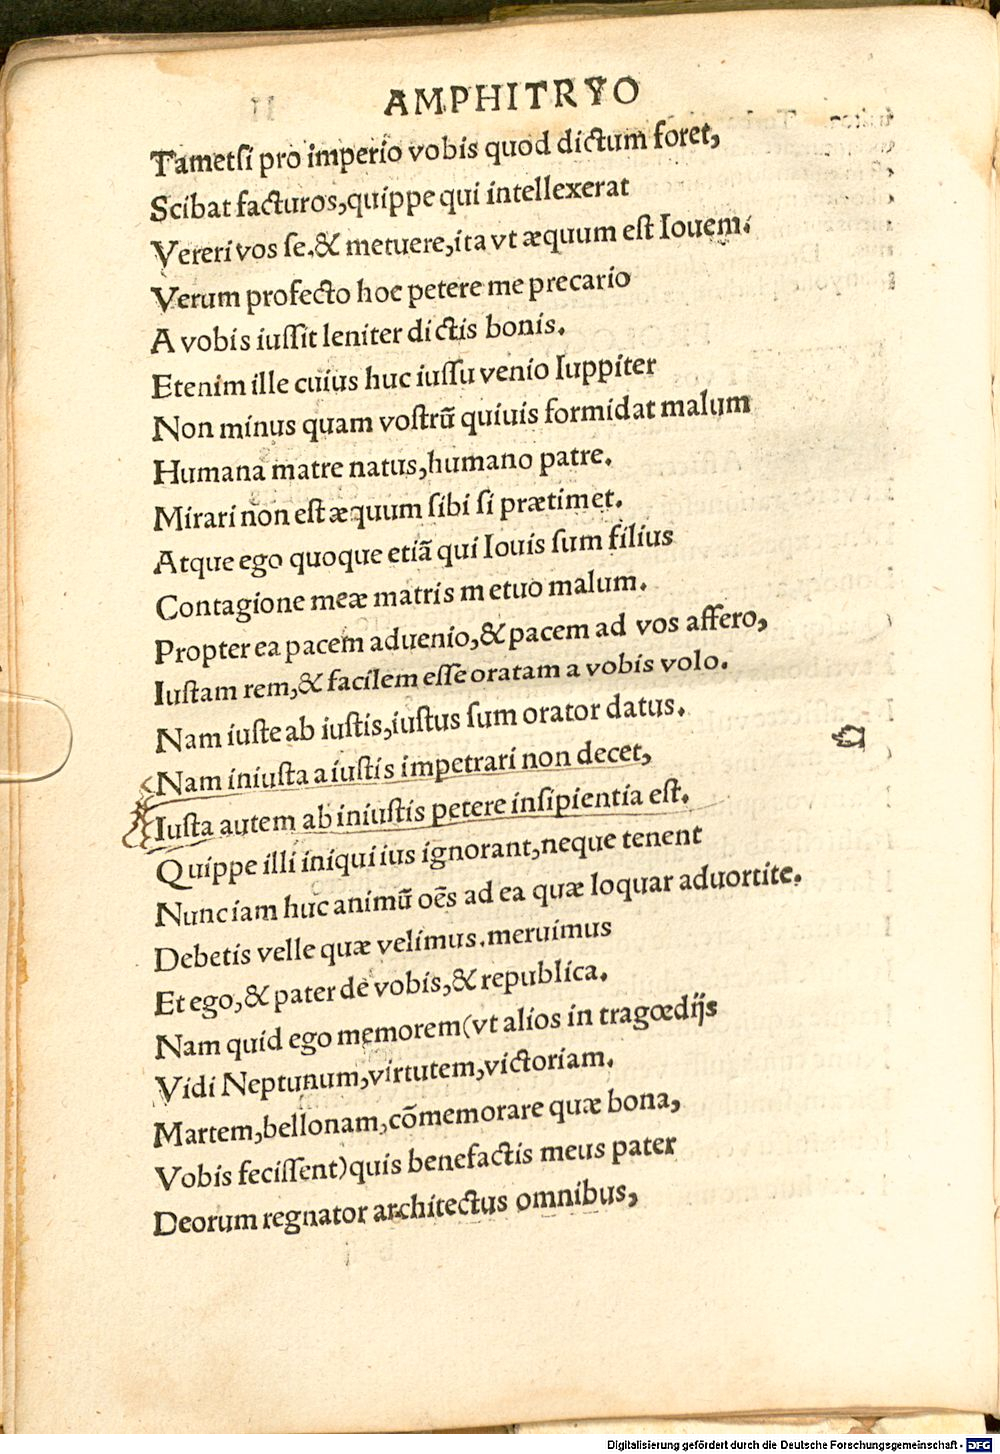 AMPHITRYO
Tametſi pro imperio vobis quod dictum foret,
Scibat facturos,quippe qui intellexerat
Vereri vos ſe.& metuere,ita vt æquum eſt Iouem.
Verum profecto hoc petere me precario
A vobis iuſſit leniter dictis bonis.
Etenim ille cuius huc iuſſu venio Iuppiter
Non minus quam voſtrū quiuis formidat malum
Humana matre natus,humano patre.
Mirari non eſt æquum ſibi ſi prætimet.
Atque ego quoque etiā qui Iouis ſum filius
Contagione meæ matris metuo malum.
Propterea pacem aduenio,& pacem ad vos affero,
Iuſtam rem,& facilem eſſe oratam a vobis volo.
Nam iuſte ab iuſtis,iuſtus ſum orator datus.
Nam iniuſta a iuſtis impetrari non decet,
Iuſta autem ab iniuſtis petere inſipientia eſt.
Quippe illi iniqui ius ignorant,neque tenent
Nunc iam huc animū oēs ad ea quæ loquar aduortite.
Debetis velle quæ velimus.meruimus
Et ego,& pater de vobis,& republica.
Nam quid ego memorem(vt alios in tragœdijs
Vidi Neptunum,virtutem,victoriam.
Martem,bellonam,cōmemorare quæ bona,
Vobis feciſſent)quis benefactis meus pater
Deorum regnator architectus omnibus,
Digitalisierung gefördert durch die Deutsche Forschungsgemeinschaft - DFG